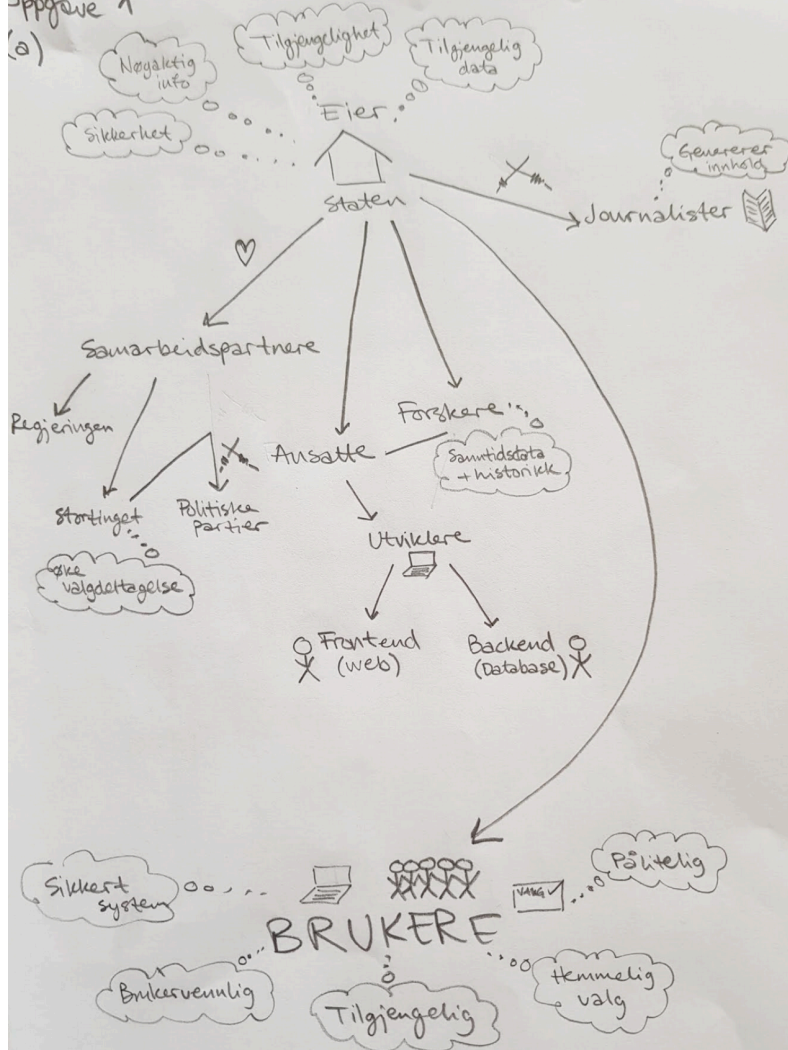 Oppgave 1
(a)
Nøyaktig
info
Tilgjengelighet
Tilgjengelig
data
Sikkerhet
Eier
Staten
Genererer
innhold
Journalister
Samarbeidspartnere
Regjeringen
Stortinget
Politiske
partier
øke
valgdeltagelse
Ansatte
Forskere
Sanntidsdata
+ historikk
Utviklere
Frontend
(web)
Backend
(Database)
Sikkert
system
VALG ✓
Pålitelig
BRUKERE
Brukervennlig
Tilgjengelig
Hemmelig
valg